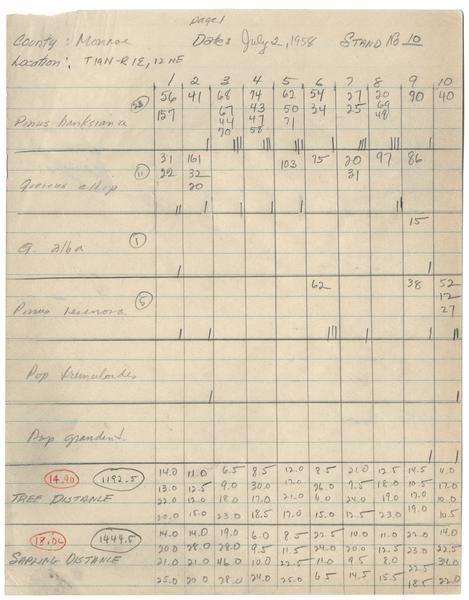 page 1
County: Monroe Date: July 2, 1958 STAND No 10
Location: T19N-R1E, 12 NE
1 2 3 4 5 6 7 8 9 10
56 41 68 74 62 54 27 20 90 40
157 67 43 50 34 25 69
Pinus banksiana 44 47 71 48
70 58
31 161 103 75 20 97 86
22 32 31
Quercus ellip 11 20
Q. alba 1 15
62 38 52
12
Pinus resinosa 5 27
Pop tremuloides
Pop grandent.
14.90 1192.5 14.0 11.0 6.5 8.5 12.0 8.5 21.0 12.5 14.5
13.0 12.5 9.0 30.0 17.0 9.5 18.0 10.5 17.0
TREE DISTANCE 22.0 12.0 18.0 17.0 21.0 6.0 24.0 19.0 17.0 10.0
20.0 15.0 23.0 18.5 17.0 15.0 12.5 23.0 19.0 10.5
18.06 1444.5 14.0 14.0 19.0 6.0 8.5 22.5 10.0 11.0 22.0 14.0
20.0 28.0 28.0 9.5 11.5 24.0 20.0 12.5 23.0 22.5
SAPLING DISTANCE 21.0 21.0 46.0 10.0 22.5 11.0 9.5 8.0 22.5 34.0
25.0 20.0 28.0 24.0 25.5 6.5 14.5 15.5 18.5 22.0